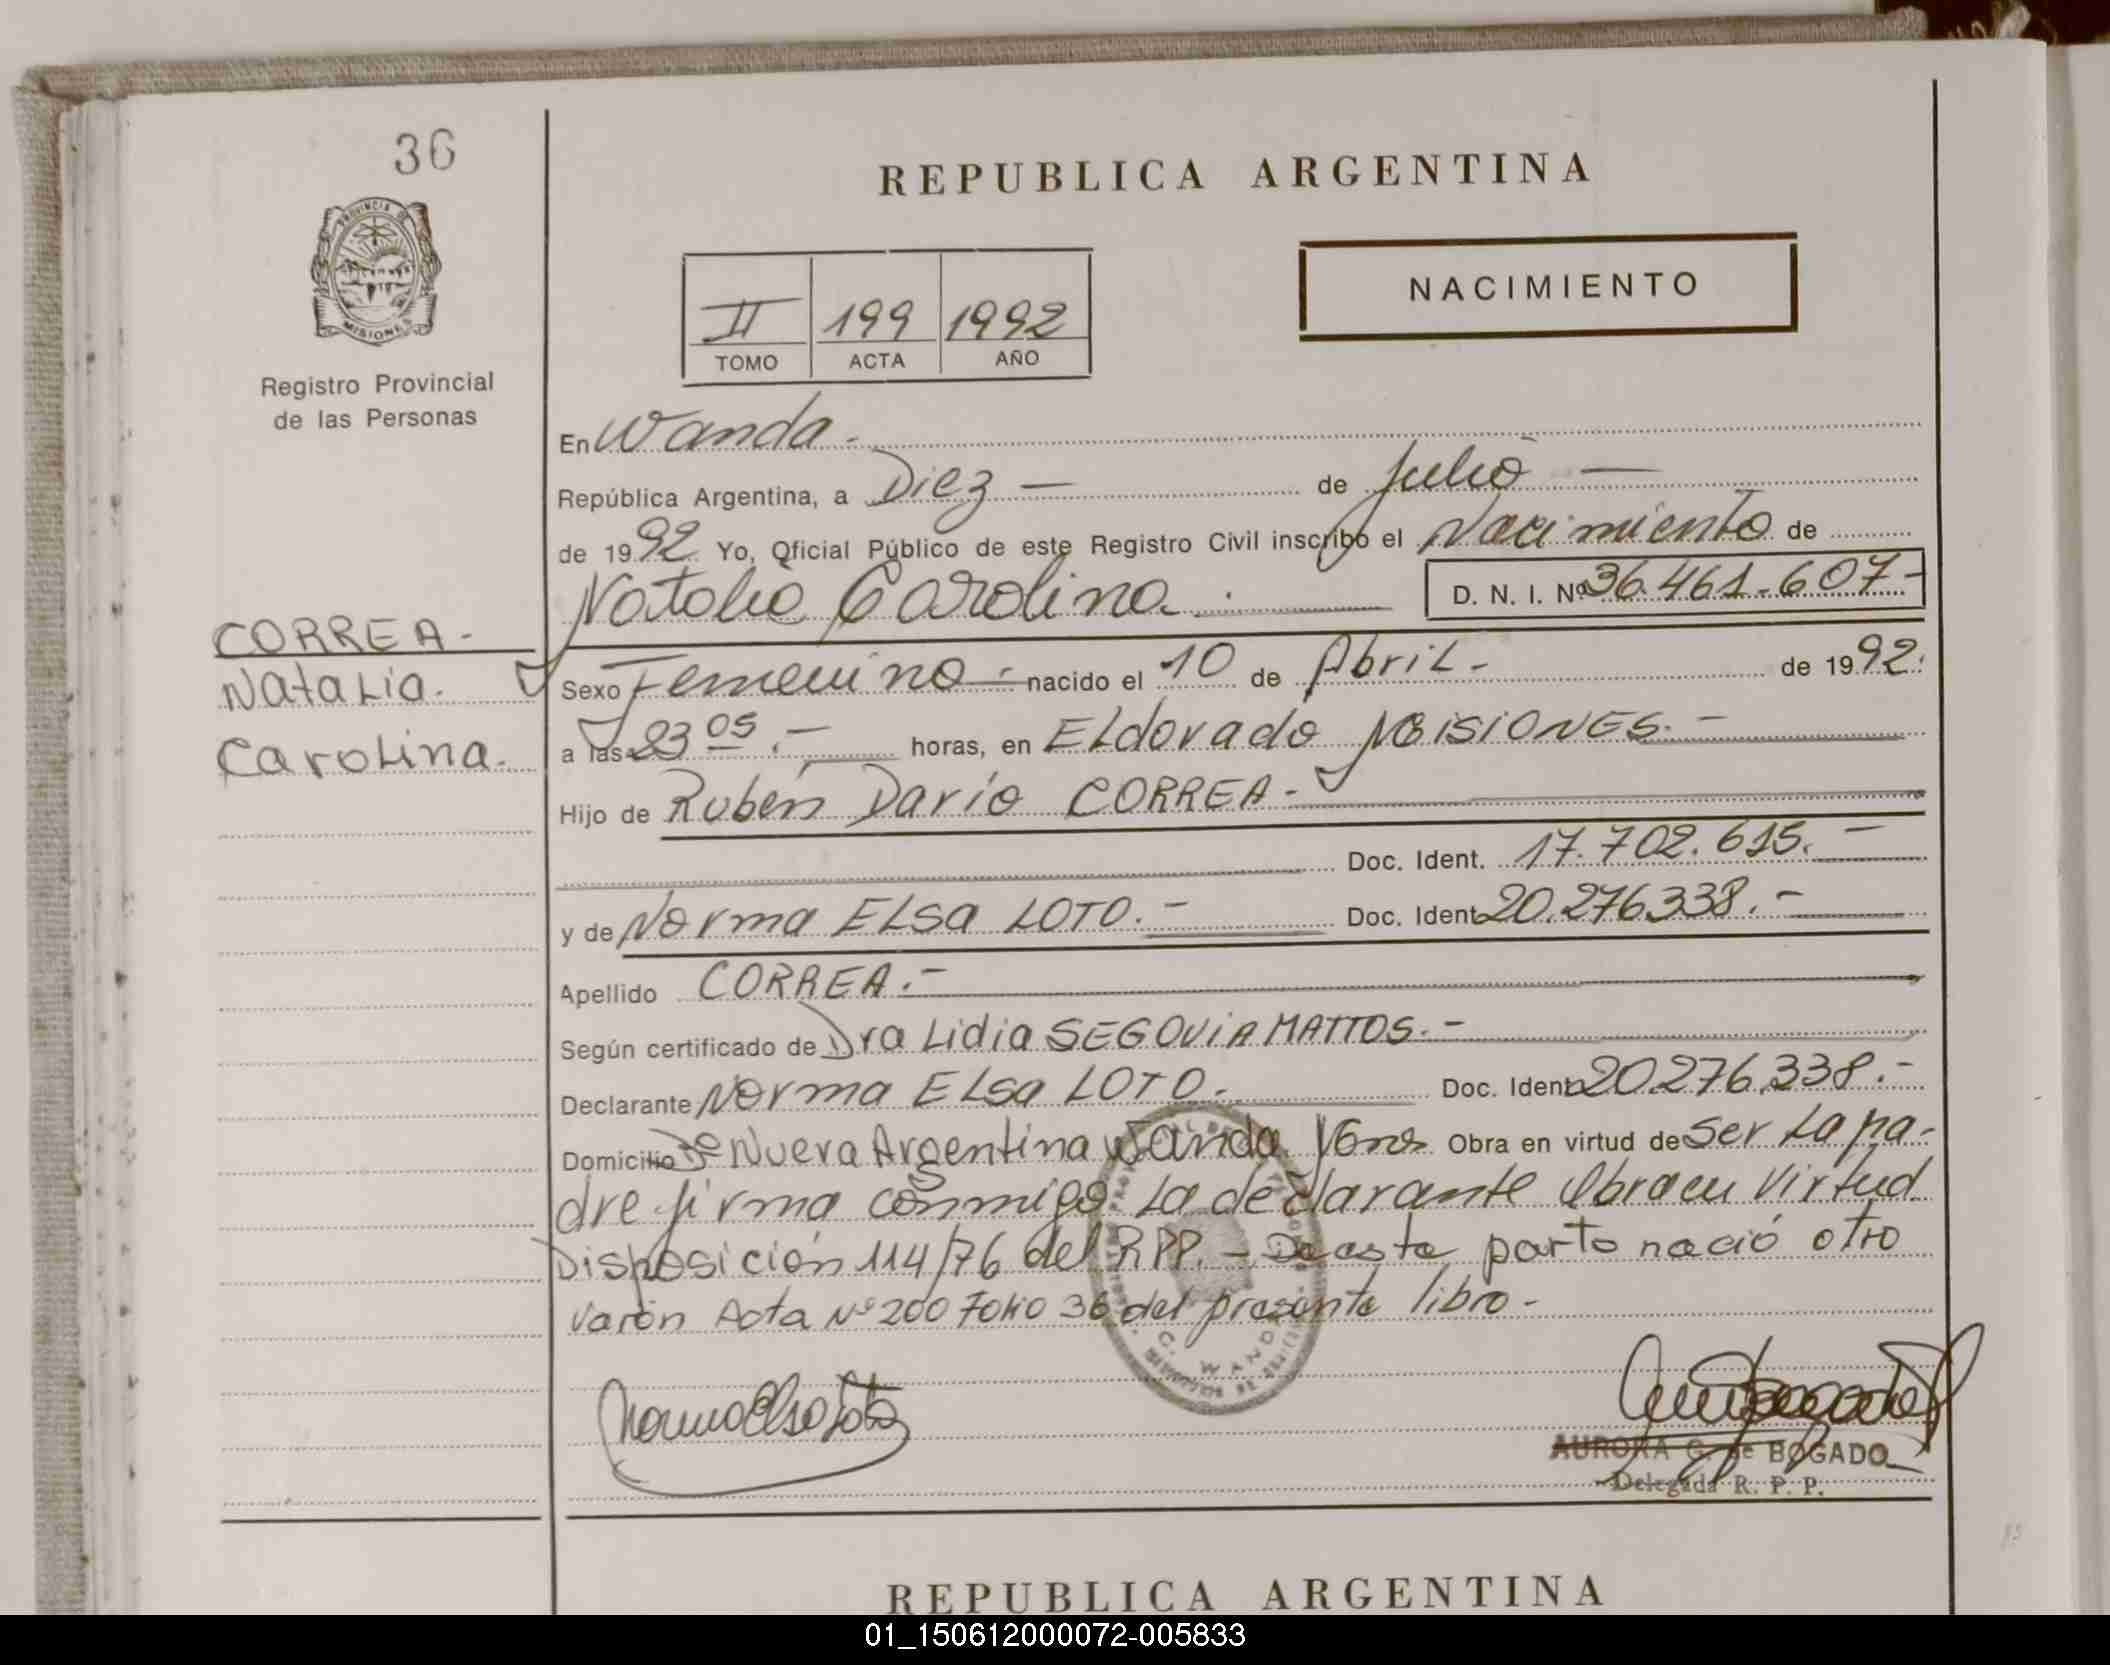 36
REPUBLICA ARGENTINA
PROVINCIA DE
MISIONES
Registro Provincial
de las Personas
NACIMIENTO
II 199 1992
TOMO ACTA AÑO
En Wanda.
República Argentina, a Diez — de Julio —
de 1992 Yo, Oficial Público de este Registro Civil inscribo el Nacimiento de
Natalia Carolina. D. N. I. Nº 36.461.607-
CORREA.-
Natalia.
Carolina.
Sexo Femenino.- nacido el 10 de Abril.- de 1992.
a las 23 05.- horas, en Eldorado Misiones.-
Hijo de Rubén Darío CORREA-
Doc. Ident. 17.702.615.-
y de Norma ELsa LOTO.- Doc. Ident 20.276.338.-
Apellido CORREA.-
Según certificado de Dra Lidia SEGOVIA MATTOS.-
Declarante Norma ELsa LOTO. Doc. Ident 20.276.338.-
Domicilio Bº Nueva Argentina Wanda Obra en virtud de Ser La Ma-
dre firma conmigo La declarante Obra en Virtud
Disposición 114/76 del RPP.- De este parto nació otro
Varón Acta Nº 200 Folio 36 del presente libro-
WANDA
Norma Elsa Loto
AURORA G. de BOGADO
Delegada R. P. P.
REPUBLICA ARGENTINA
01_150612000072-005833